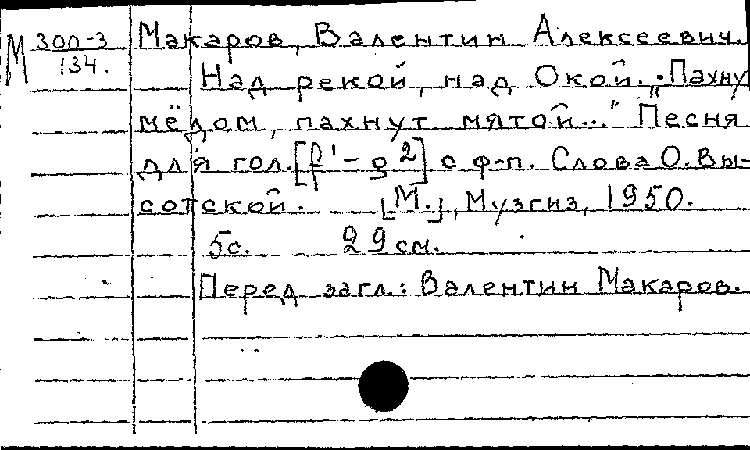 М 300-3 Макаров, Валентин Алексеевич.
134. Над рекой, над Окой. „Пахну
мёдом, пахнут мятой..." Песня
для гол. [f¹-g²] с ф-п. Слова О. Вы-
сотской. [М.], Музгиз, 1950.
5с. 29 см.
Перед загл.: Валентин Макаров.